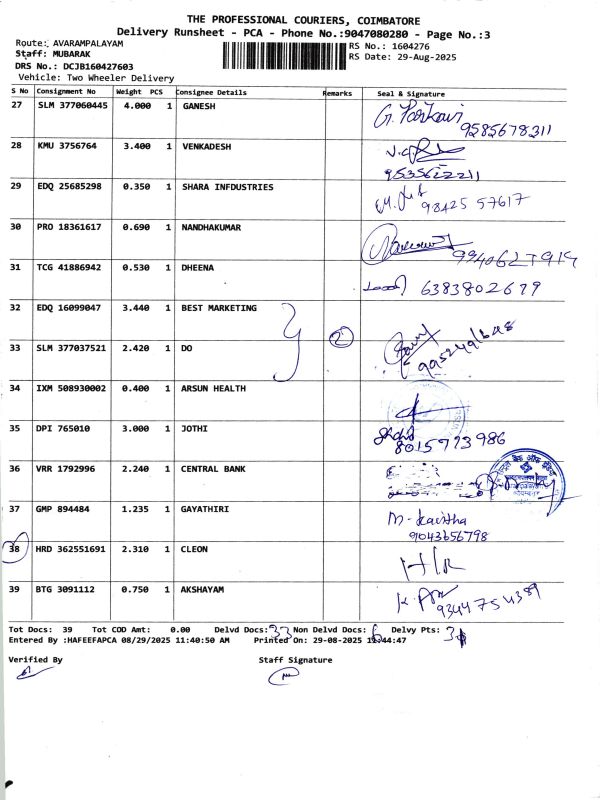 THE PROFESSIONAL COURIERS, COIMBATORE
Delivery Runsheet - PCA - Phone No.:9047080280 - Page No.:3
Route: AVARAMPALAYAM
Staff: MUBARAK
DRS No.: DCJB160427603
Vehicle: Two Wheeler Delivery
RS No.: 1604276
RS Date: 29-Aug-2025
S No Consignment No Weight PCS Consignee Details Remarks Seal & Signature
27 SLM 377060445 4.000 1 GANESH
9585678311
28 KMU 3756764 3.400 1 VENKADESH
9535622211
29 EDQ 25685298 0.350 1 SHARA INFDUSTRIES 98425 57617
30 PRO 18361617 0.690 1 NANDHAKUMAR
31 TCG 41886942 0.530 1 DHEENA 6383802679
32 EDQ 16099047 3.440 1 BEST MARKETING
2
33 SLM 377037521 2.420 1 DO
34 IXM 508930002 0.400 1 ARSUN HEALTH
35 DPI 765010 3.000 1 JOTHI
8015773986
36 VRR 1792996 2.240 1 CENTRAL BANK
37 GMP 894484 1.235 1 GAYATHIRI
9043656798
38 HRD 362551691 2.310 1 CLEON
39 BTG 3091112 0.750 1 AKSHAYAM
9344754389
Tot Docs: 39 Tot COD Amt: 0.00 Delvd Docs: 33 Non Delvd Docs: 6 Delvy Pts:
Entered By :HAFEEFAPCA 08/29/2025 11:40:50 AM Printed On: 29-08-2025 11:44:47
Verified By Staff Signature